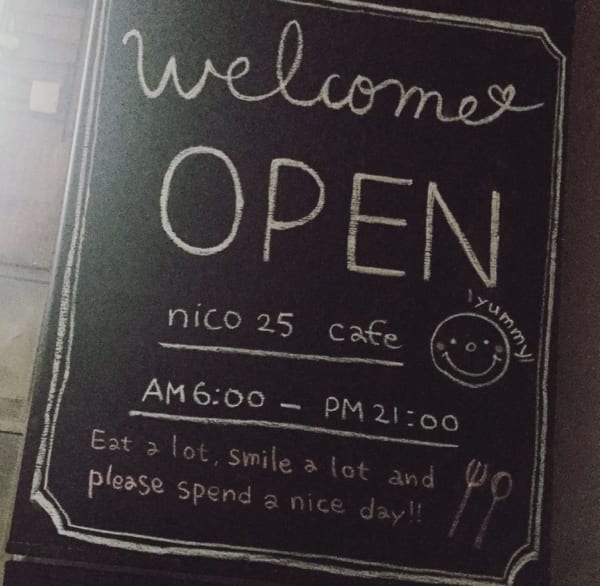 welcome
OPEN
nico 25 cafe
yummy!!
AM 6:00 - PM 21:00
Eat a lot, smile a lot and
please spend a nice day!!